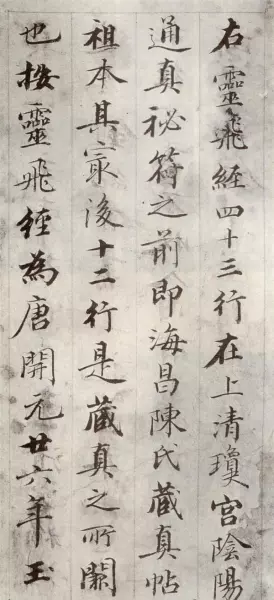 右靈飛經四十三行在上清瓊宮陰陽
通真祕符之前即海昌陳氏藏真帖
祖本其冣後十二行是藏真之所闕
也按靈飛經為唐開元廿六年玉